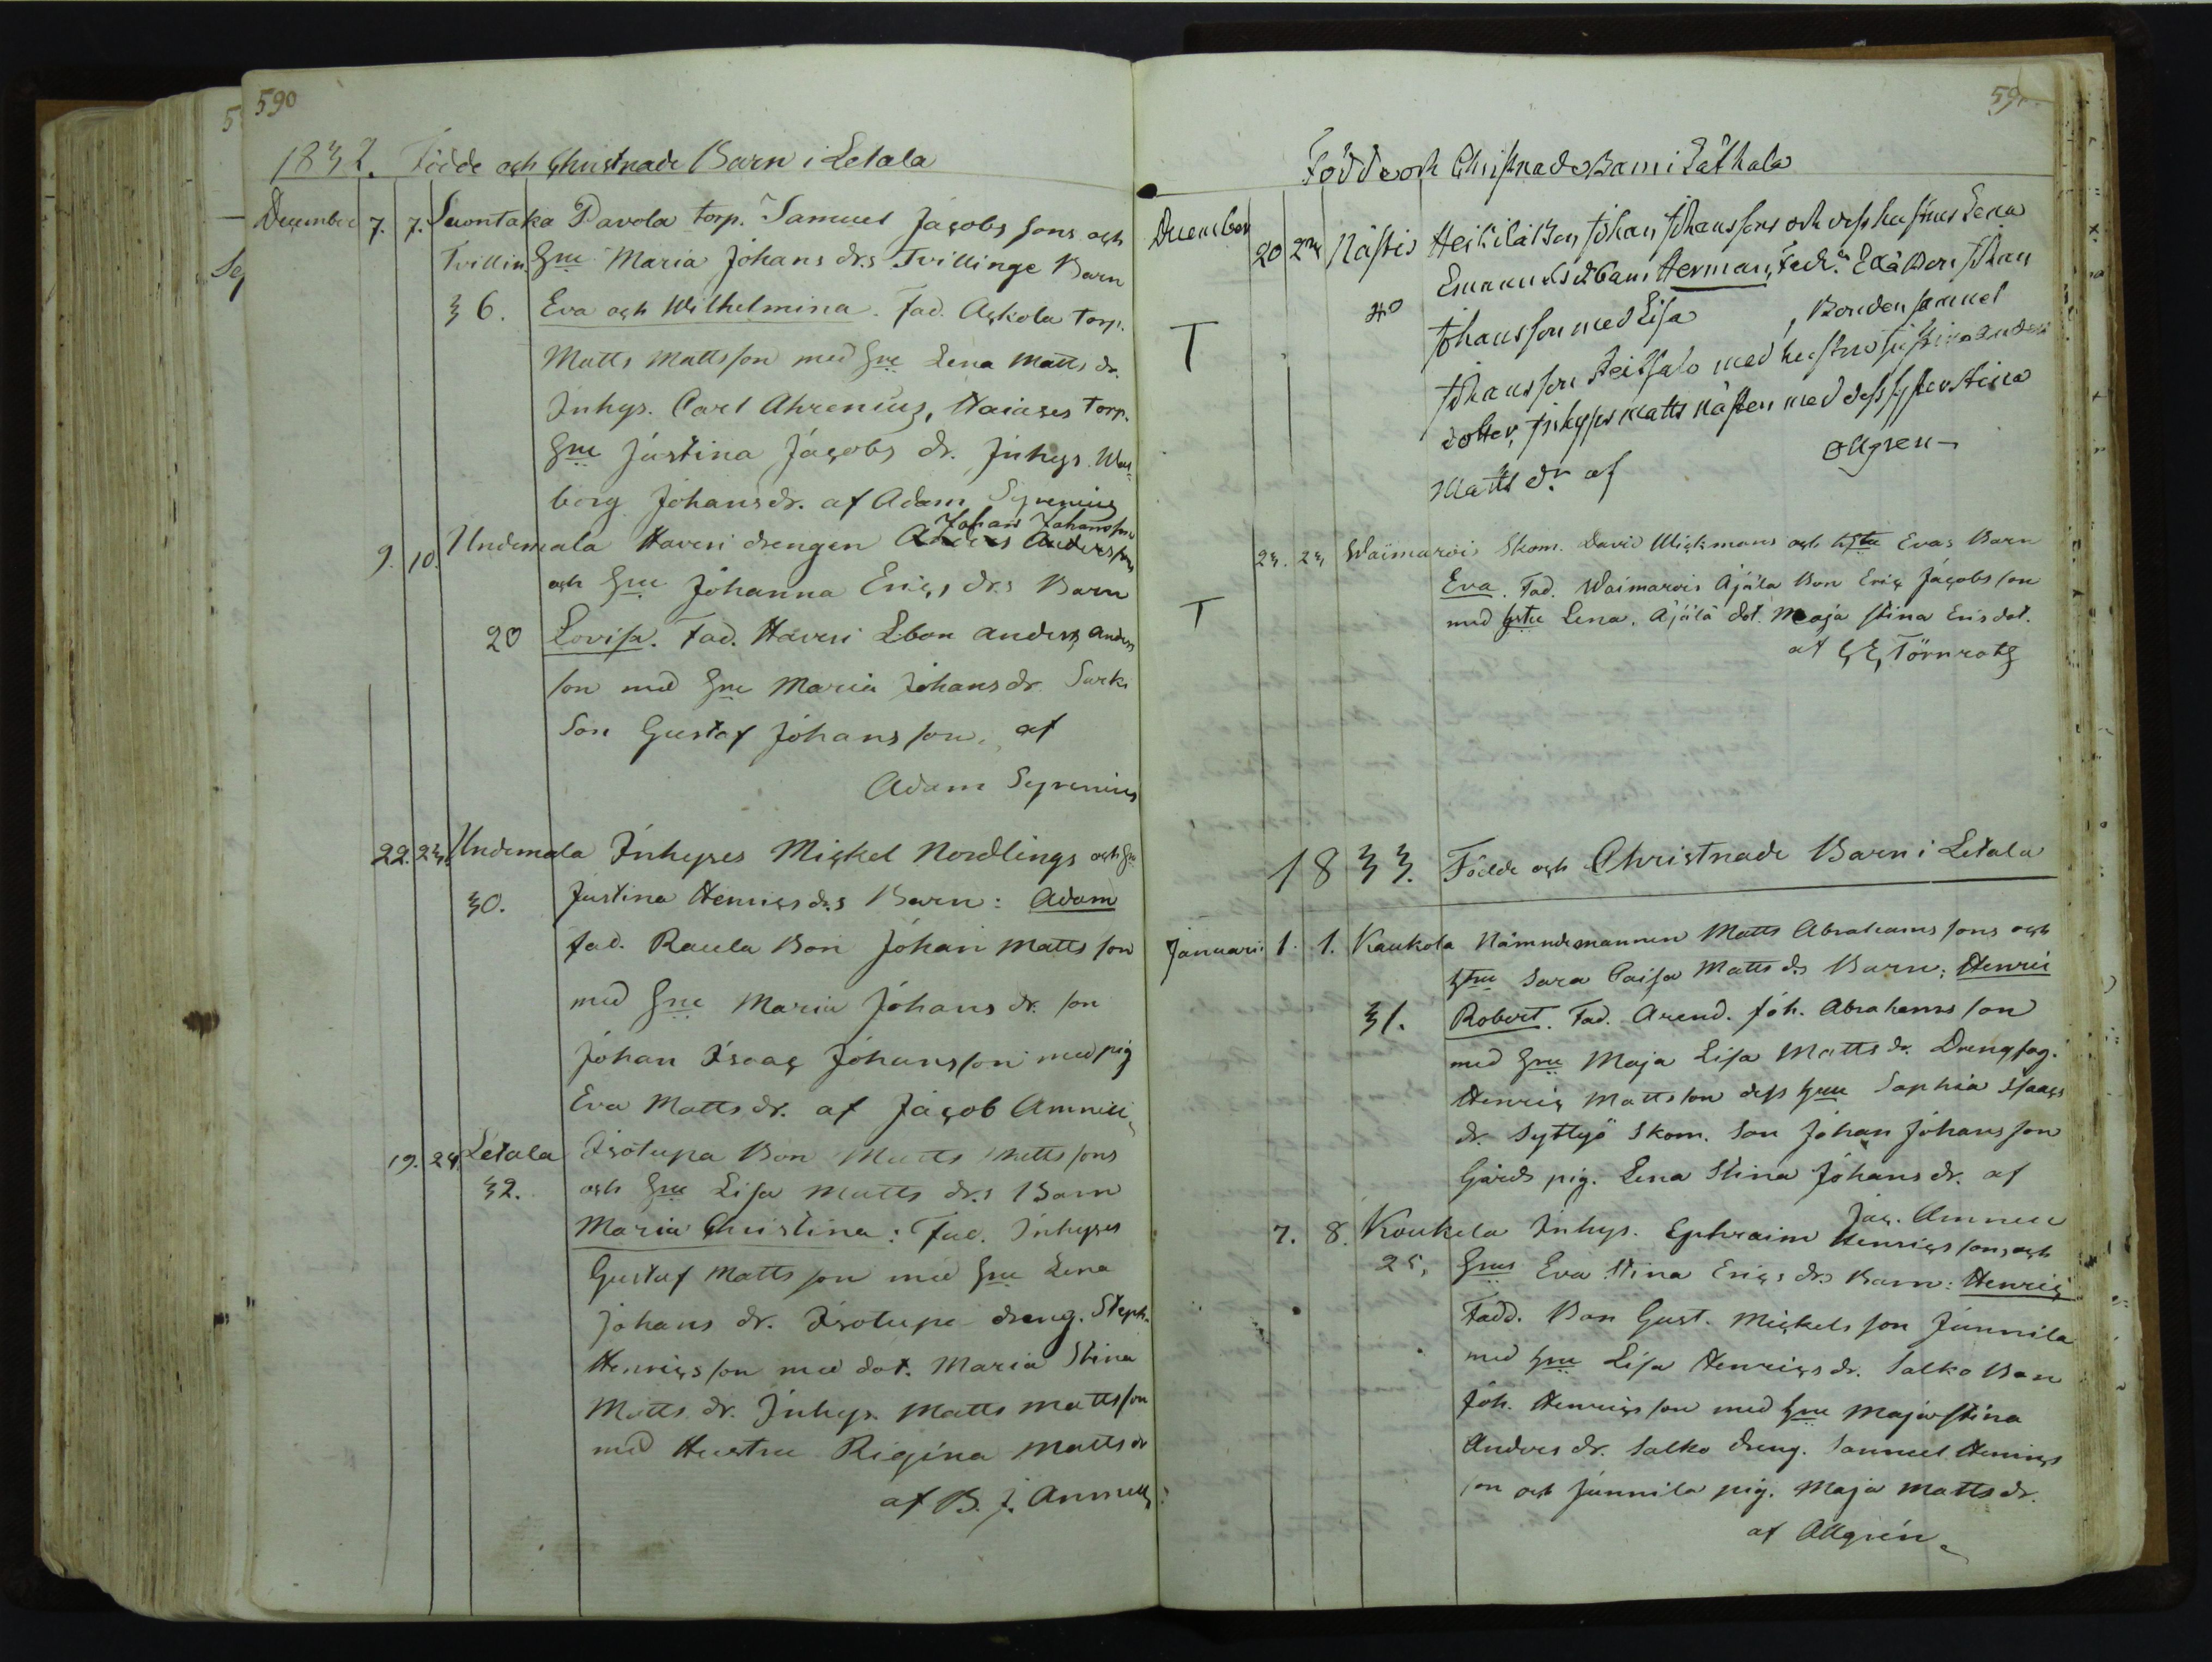 590
1832. Födde och Christnade Barn i Letala
December 7. 7. Suontaka Pavola torp. Samuel Jacobs sons och
Tvillin. Hru Maria Johans drs Tvillinge Barn
36. Eva och Wilhelmina. Fad. Ackola Torp.
Matts Mattsson med Hru Lena Matts dr.
Inhys. Carl Ahrenius, Torp.
Hru Justina Jacobs dr. Inhys. Wal-
borg Johansdr. af Adam Syrenius
Johan Johansson
9. 10. Undemala Haveri drengen Anders Anderssons
och Hru Johanna Erics drs Barn
20 Lovisa. Fad. Haveri Lbon Anders Anders
son med Hru Maria Johans dr.
Son Gustaf Johansson, af
Adam Syrenius
22. 23. Undemala Inhyses Mickel Nordlings och Hru
30. Justina Henricsdrs Barn: Adam
fad. Raula Bon Johan Matts son
med Hru Maria Johans dr. son
Johan Isaac Johansson med pig
Eva Matts dr. af Jacob Amnell
19. 24 Letala Isotupa Bon Matts Mattssons
32. och Hru Lisa Matts drs Barn
Maria Christina: Fad. Inhyses
Gustaf Mattsson med Hru Lena
Johans dr. Isotupa dreng. Steph.
Henricsson med dot. Maria Stina
Matts dr. Inhys. Matts Mattsson
med Hustru Rigina Matts dr
af B. J. Amnell
591.
Födde och Christnade Barn i Läthala
December 20 23 Nästis Heikilä Bon Johan Johanssons och dess hustrus Lena
Emanuels d Barn Herman, Fadr. Bon Johan
40 Johansson med Lisa , Bonden Samuel
T Johansson med hustru Justina Anders
dotter, Inhyses Matts Nästen med dess syster Stina
Matts dr af Ollgren
23. 23 Waimarois Skom. David Wickmans och hstu Evas Barn
T Eva. Fad. Waimarois Äjälä Bon Eric Jacobsson
med hstu Lena. Äjälä dot. Maja Stina Erisdot.
af Törnroth
1833. Födde och Christnade Barn i Letala
Januari 1. 1. Kaukola Nämndemannen Matts Abrahams sons och
hru Sara Caisa Matts ds Barn; Henric
31. Robert. Fad. Arend. Joh. Abrahamsson
med Hru Maja Lisa Matts dr. Dreng
Henric Mattsson dess hru Sophia Isaacs
dr. Syttyö Skom. Son Johan Johansson
Gårds pig. Lena Stina Johans dr. af
Jac. Amnell
7. 8. Koukela Inhys. Ephraim Henricssons och
25. Hrus Eva Stina Erics drs Barn: Henric
Fadd. Bon Gust. Mickelsson Junnila
med hru Lisa Henrics dr. Salko Bon
Joh. Henricsson med hru Maja Stina
Anders dr. Salko dreng. Samuel Henrics
son och Junnila pig. Maja Matts dr.
af Allgrén